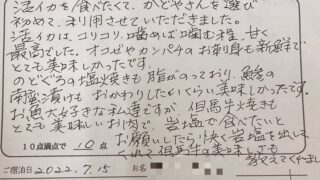 活イカを食べたくて、かどやさんを選び
初めて、利用させていただきました。
活イカは、コリコリ、噛めば噛む程、甘く
最高でした。オコゼやカンパチのお刺身も新鮮で
とても美味しかったです。
のどぐろの塩焼きも脂がのっており、鯵の
南蛮漬けもおかわりしたいくらい美味しかったです。
お魚大好きな私達ですが但馬牛焼きも
とても美味しいお肉で、岩塩で食べたいと
お願いしたら快く岩塩を出して
くれて但馬牛の美味しさも
10点満点で 10 点
ご宿泊日 2022.7.15 お名